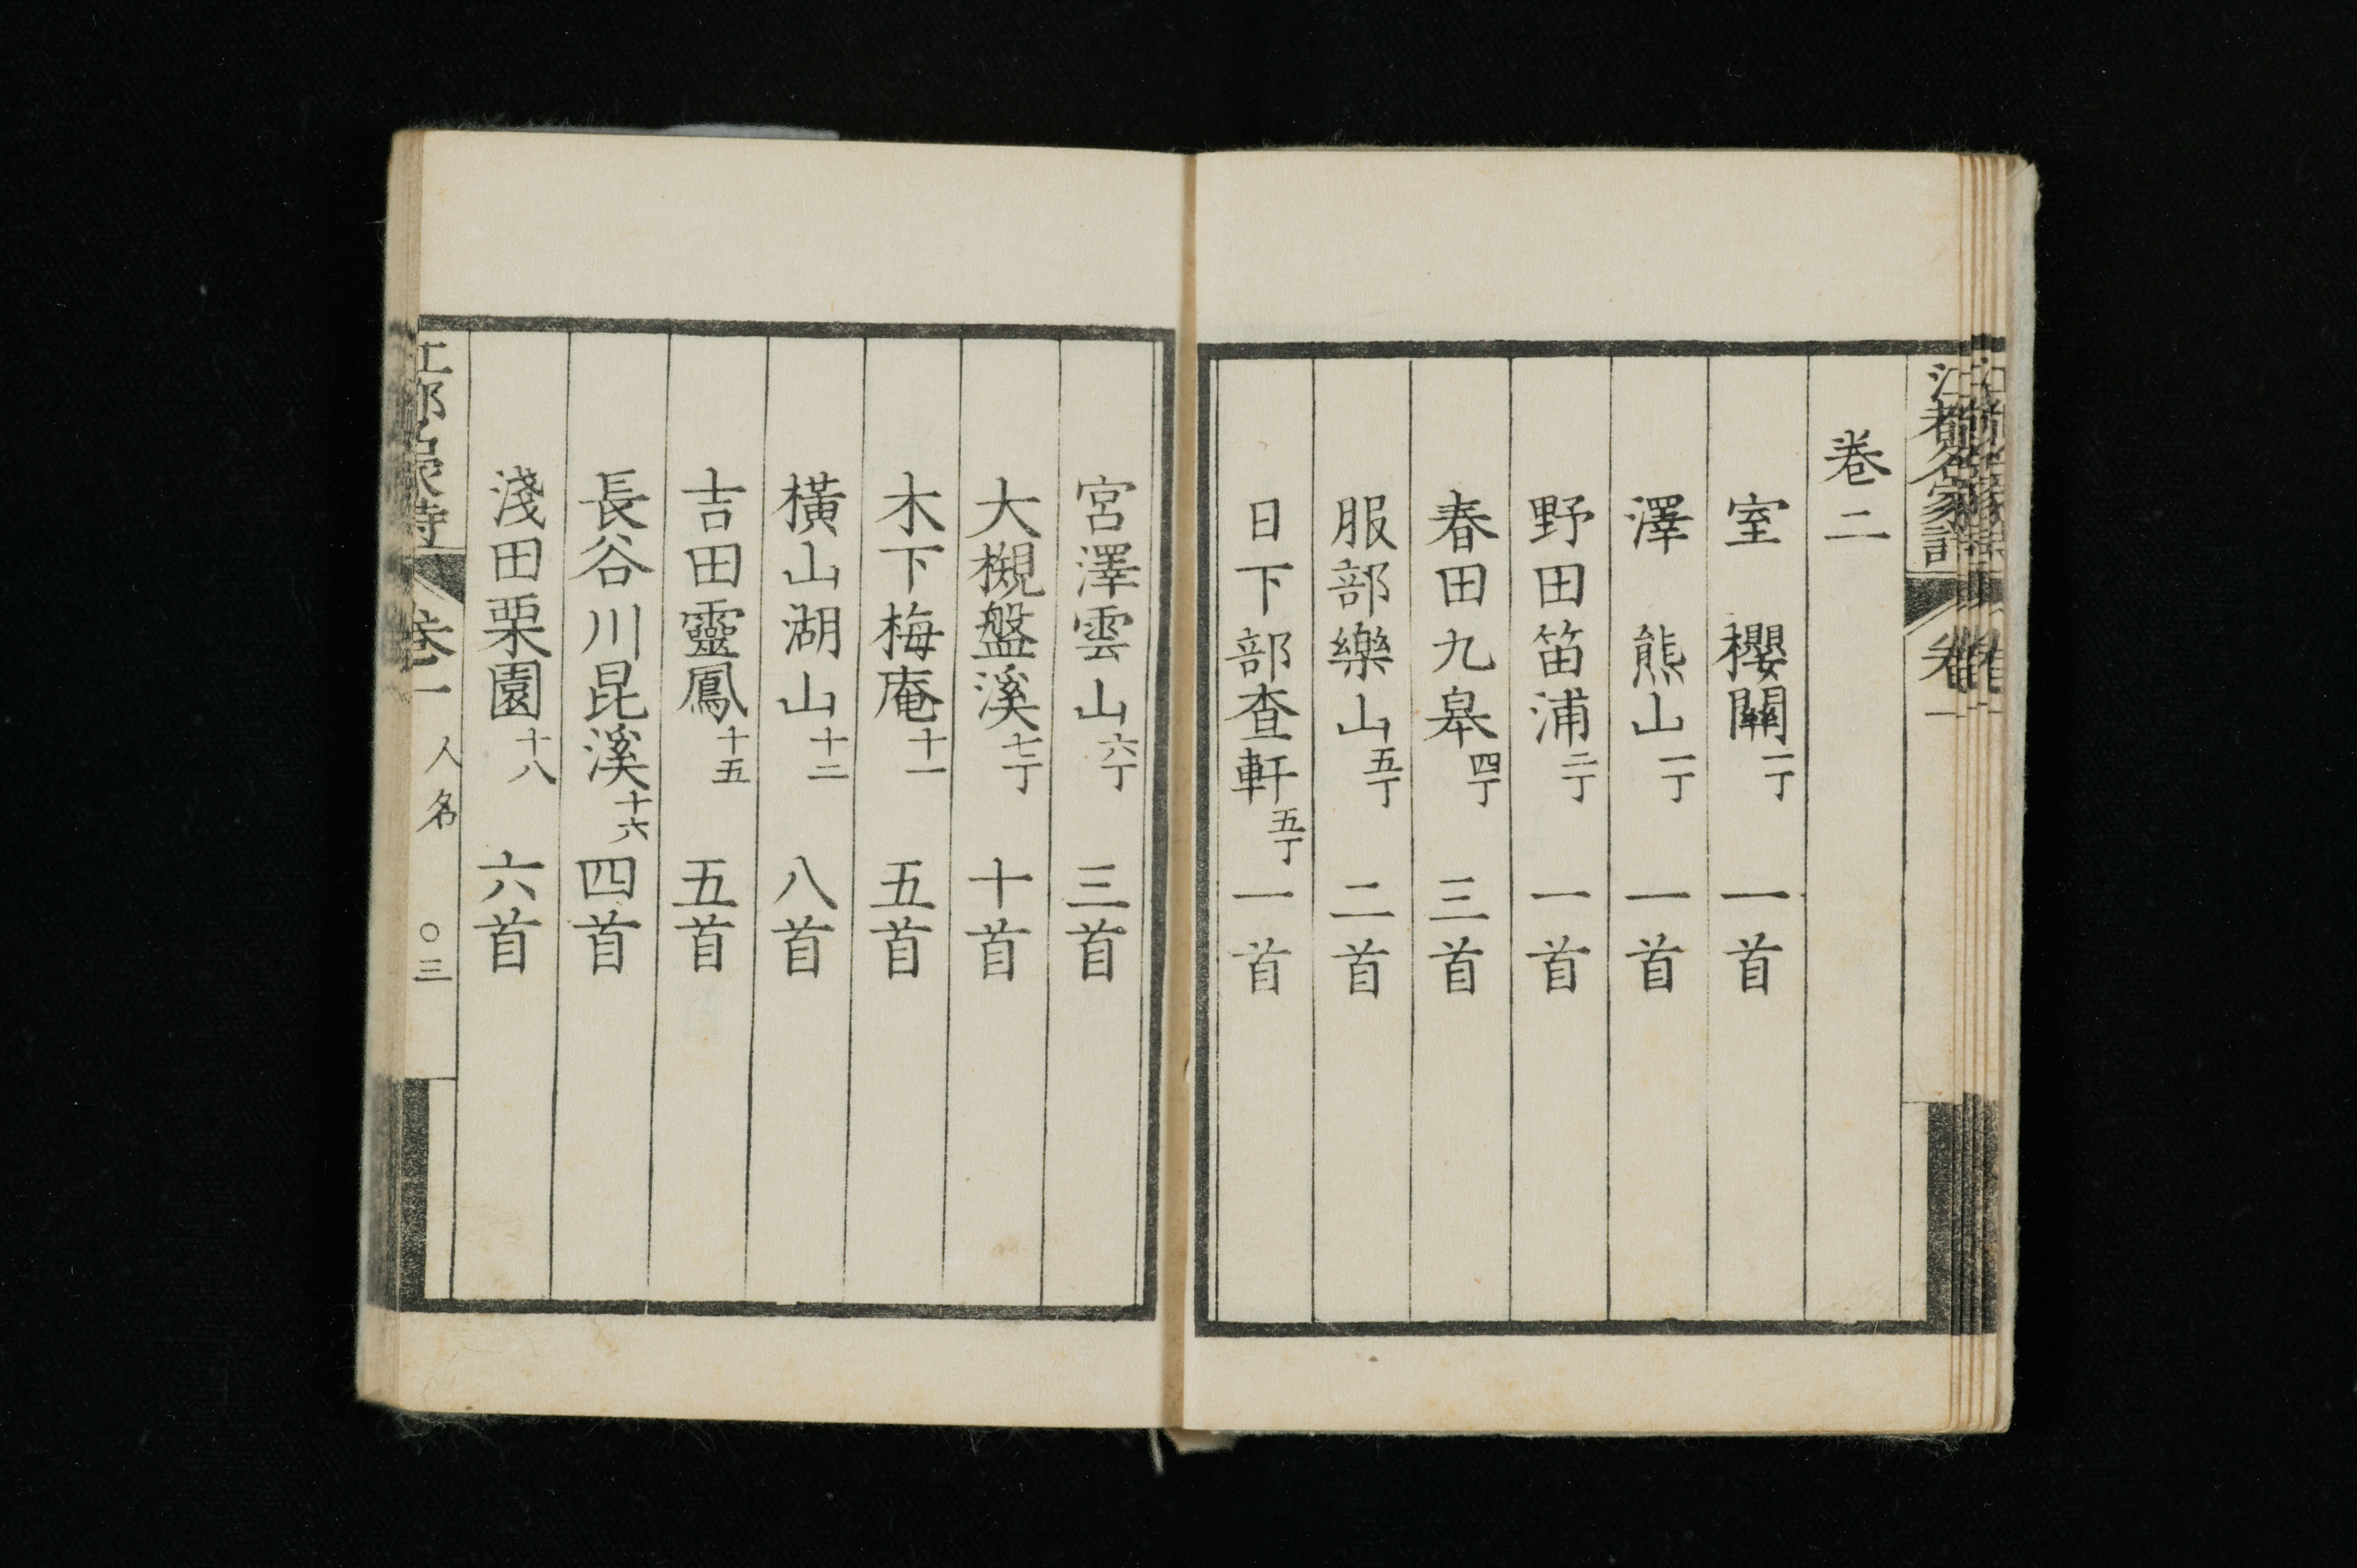 卷二
室　櫻關一丁　一首
澤　熊山一丁　一首
野田笛浦二丁　一首
春田九皋四丁　三首
服部樂山五丁　二首
日下部査軒五丁　一首
宮澤雲山六丁　三首
大槻盤溪七丁　十首
木下梅庵十一　五首
橫山湖山十二　八首
吉田靈鳳十五　五首
長谷川昆溪十六　四首
淺田栗園十八　六首
江都名家詩　卷一　人名　○三